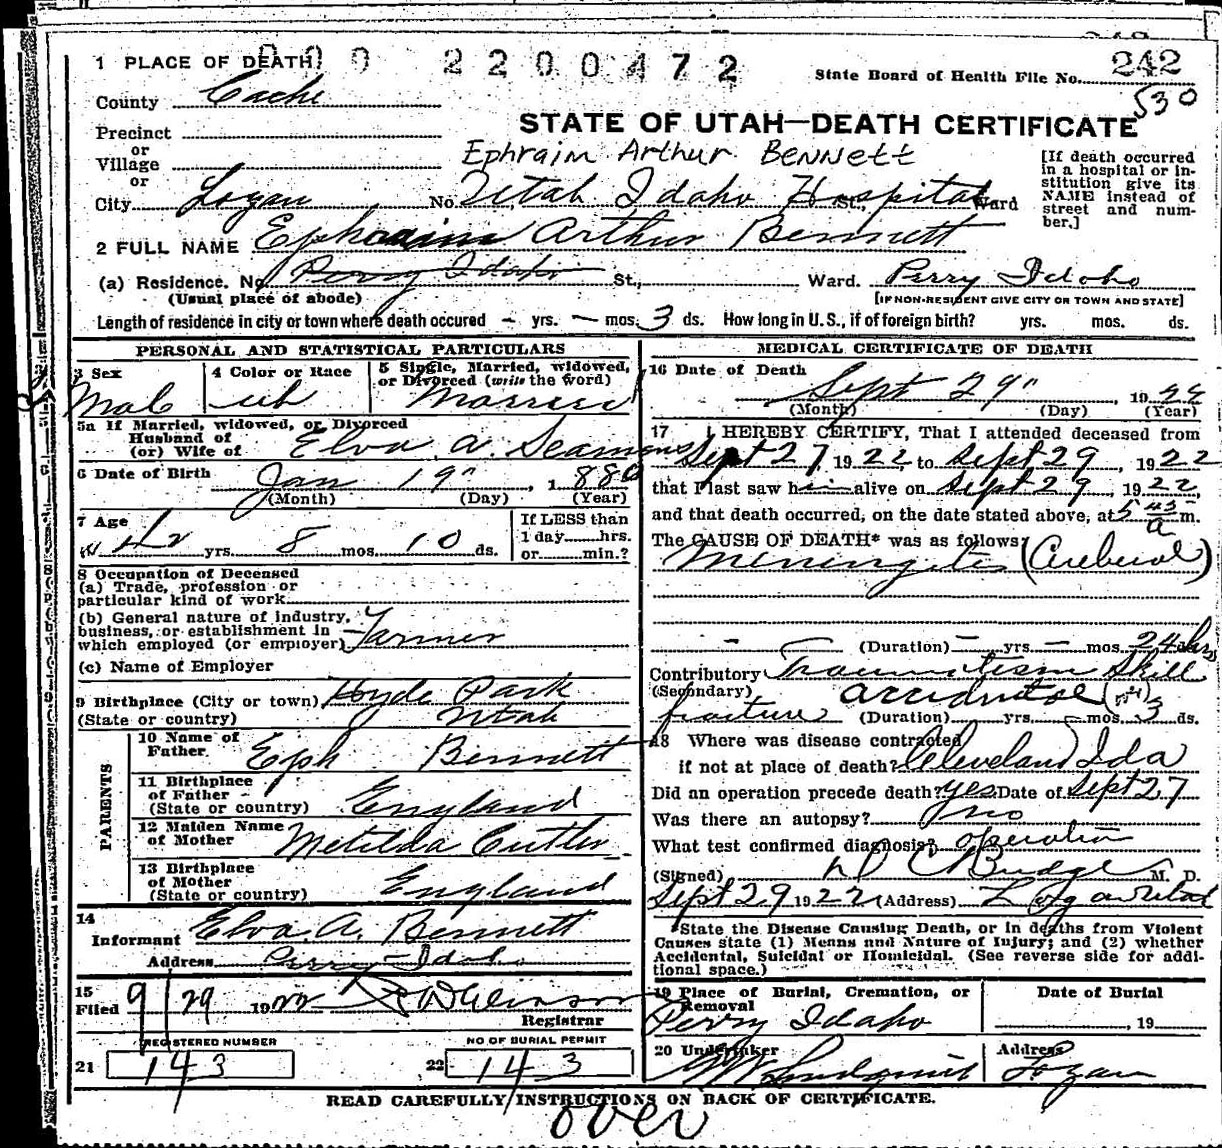 1 PLACE OF DEATH
000 2200472
State Board of Health File No. 242
530
County Cache
STATE OF UTAH—DEATH CERTIFICATE
Precinct
or
Village
or
City Logan No. Utah Idaho Hospital St., Ward
Ephraim Arthur Bennett
[If death occurred in a hospital or institution give its NAME instead of street and number.]
2 FULL NAME Ephraim Arthur Bennett
(a) Residence. No. Perry Idaho St., Ward. Perry Idaho
(Usual place of abode) [IF NON-RESIDENT GIVE CITY OR TOWN AND STATE]
Length of residence in city or town where death occured - yrs. - mos. 3 ds. How long in U.S., if of foreign birth? yrs. mos. ds.
PERSONAL AND STATISTICAL PARTICULARS
3 Sex
Male
4 Color or Race
wh
5 Single, Married, widowed,
or Divorced (write the word)
Married
5a If Married, widowed, or Divorced
Husband of
(or) Wife of Elva A. Seamons
6 Date of Birth Jan 19" 1880
(Month) (Day) (Year)
7 Age
42 yrs. 8 mos. 10 ds.
If LESS than
1 day......hrs.
or......min.?
8 Occupation of Deceased
(a) Trade, profession or
particular kind of work
(b) General nature of industry,
business, or establishment in
which employed (or employer) Farmer
(c) Name of Employer
9 Birthplace (City or town) Hyde Park
(State or country) Utah
PARENTS
10 Name of
Father Eph Bennett
11 Birthplace
of Father
(State or country) England
12 Maiden Name
of Mother Metilda Cutler
13 Birthplace
of Mother
(State or country) England
14
Informant Elva A. Bennett
Address Perry Idaho
15
Filed 9/29 1922
Registrar
REGISTERED NUMBER
21 143
NO OF BURIAL PERMIT
22 143
MEDICAL CERTIFICATE OF DEATH
16 Date of Death
Sept 29" 1922
(Month) (Day) (Year)
17 I HEREBY CERTIFY, That I attended deceased from
Sept 27, 1922 to Sept 29, 1922
that I last saw him alive on Sept 29, 1922,
and that death occurred, on the date stated above, at 5 45 a m.
The CAUSE OF DEATH* was as follows:
Meningitis (Cerebral)
(Duration) - yrs. - mos. 24 hrs
Contributory Traumatism Skull
(Secondary) accidental
fracture (Duration) yrs. - mos. 3 ds.
18 Where was disease contracted
if not at place of death? Cleveland Ida
Did an operation precede death? yes Date of Sept 27
Was there an autopsy? no
What test confirmed diagnosis? operation
(Signed) D C Budge M. D.
Sept 29 1922 (Address) Logan Utah
*State the Disease Causing Death, or in deaths from Violent
Causes state (1) Menns and Nature of Injury; and (2) whether
Accidental, Suicidal or Homicidal. (See reverse side for addi-
tional space.)
19 Place of Burial, Cremation, or
Removal
Perry Idaho
Date of Burial
, 19
20 Undertaker
Lindquist
Address
Logan
READ CAREFULLY INSTRUCTIONS ON BACK OF CERTIFICATE.
over